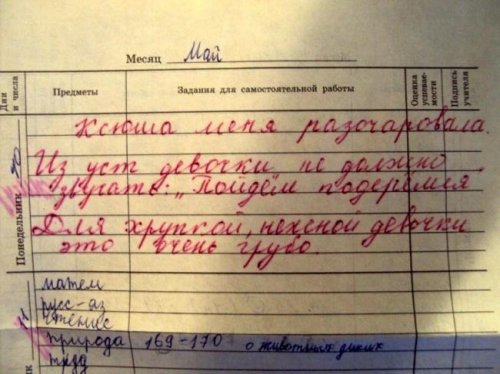 Месяц Май
Дни и числа
Предметы
Задания для самостоятельной работы
Оценка успевае-мости
Подпись учителя
Понедельник
Ксюша меня разочаровала.
Из уст девочки не должно
звучать: „Пойдём подеремся
Для хрупкой, нежной девочки
это очень грубо.
матем
русс-яз
чтение
природа 169-170 о животных диких
труд